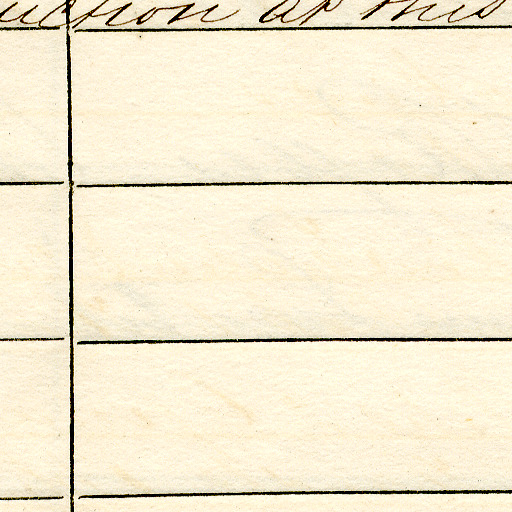 uction at this